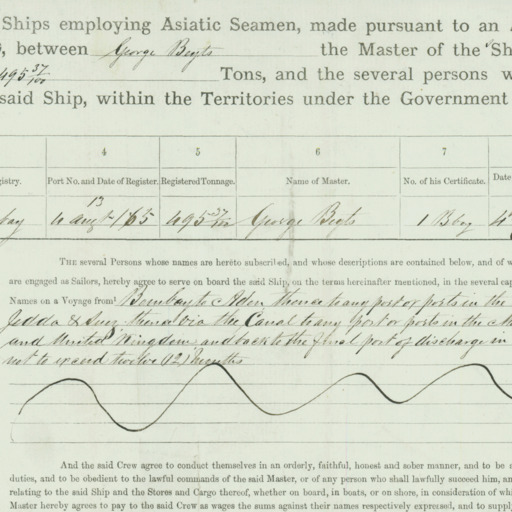 Ships employing Asiatic Seamen, made pursuant to an
, between George Beyts the Master of the "Sh
495 37/100 Tons, and the several persons w
said Ship, within the Territories under the Government
4 5 6 7
gistry. Port No. and Date of Register. Registered Tonnage. Name of Master. No. of his Certificate. Date
13
bay 4 Augt 1865 495 37/100 George Beyts 1 Bbay 4
THE several Persons whose names are hereto subscribed, and whose descriptions are contained below, and of w
are engaged as Sailors, hereby agree to serve on board the said Ship, on the terms hereinafter mentioned, in the several cap
Names on a Voyage from Bombay to Aden thence to any port or ports in the
Jedda & Suez thence via the Canal to any port or ports in the M
and United Kingdom and back to the final port of discharge in
not to exceed twelve (12) months
And the said Crew agree to conduct themselves in an orderly, faithful, honest and sober manner, and to be
duties, and to be obedient to the lawful commands of the said Master, or of any person who shall lawfully succeed him, an
relating to the said Ship and the Stores and Cargo thereof, whether on board, in boats, or on shore, in consideration of wh
Master hereby agrees to pay to the said Crew as wages the sums against their names respectively expressed, and to supply